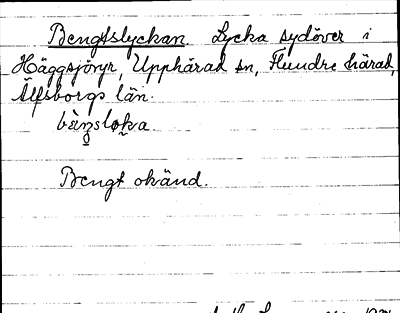 Bengtslyckan. Lycka sydöver i
Häggsjöryr, Upphärad sn, Flundre härad,
Älfsborgs län.
Bengt okänd.